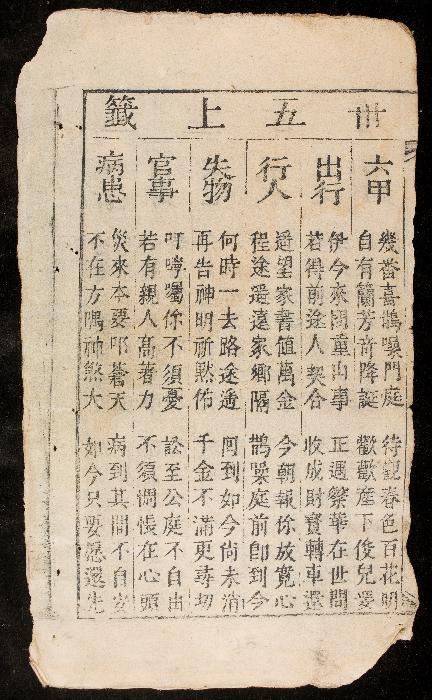 卅五上籤
六甲
幾番喜鵲噪門庭 待觀春色百花明
自有蘭芳奇降誕 歡歡産下俊兒嬰
出行
伊今來問童山事 正遇榮華在世間
若得前途人契合 收成財寶轉車還
行人
遥望家書值萬金 今朝報你放寬心
程途遥遠家鄉隔 鵲噪庭前即到今
失物
何時一去路途遥 到如今尚未消
再告神明祈黙佈 千金不滿更尋切
官事
叮嚀獨你不須憂 訟至公庭不自由
若有親人高著力 不須惆悵在心頭
病患
災來本要叩蒼天 病到其間不自安
不在方隅神煞大 如今只要愿還先